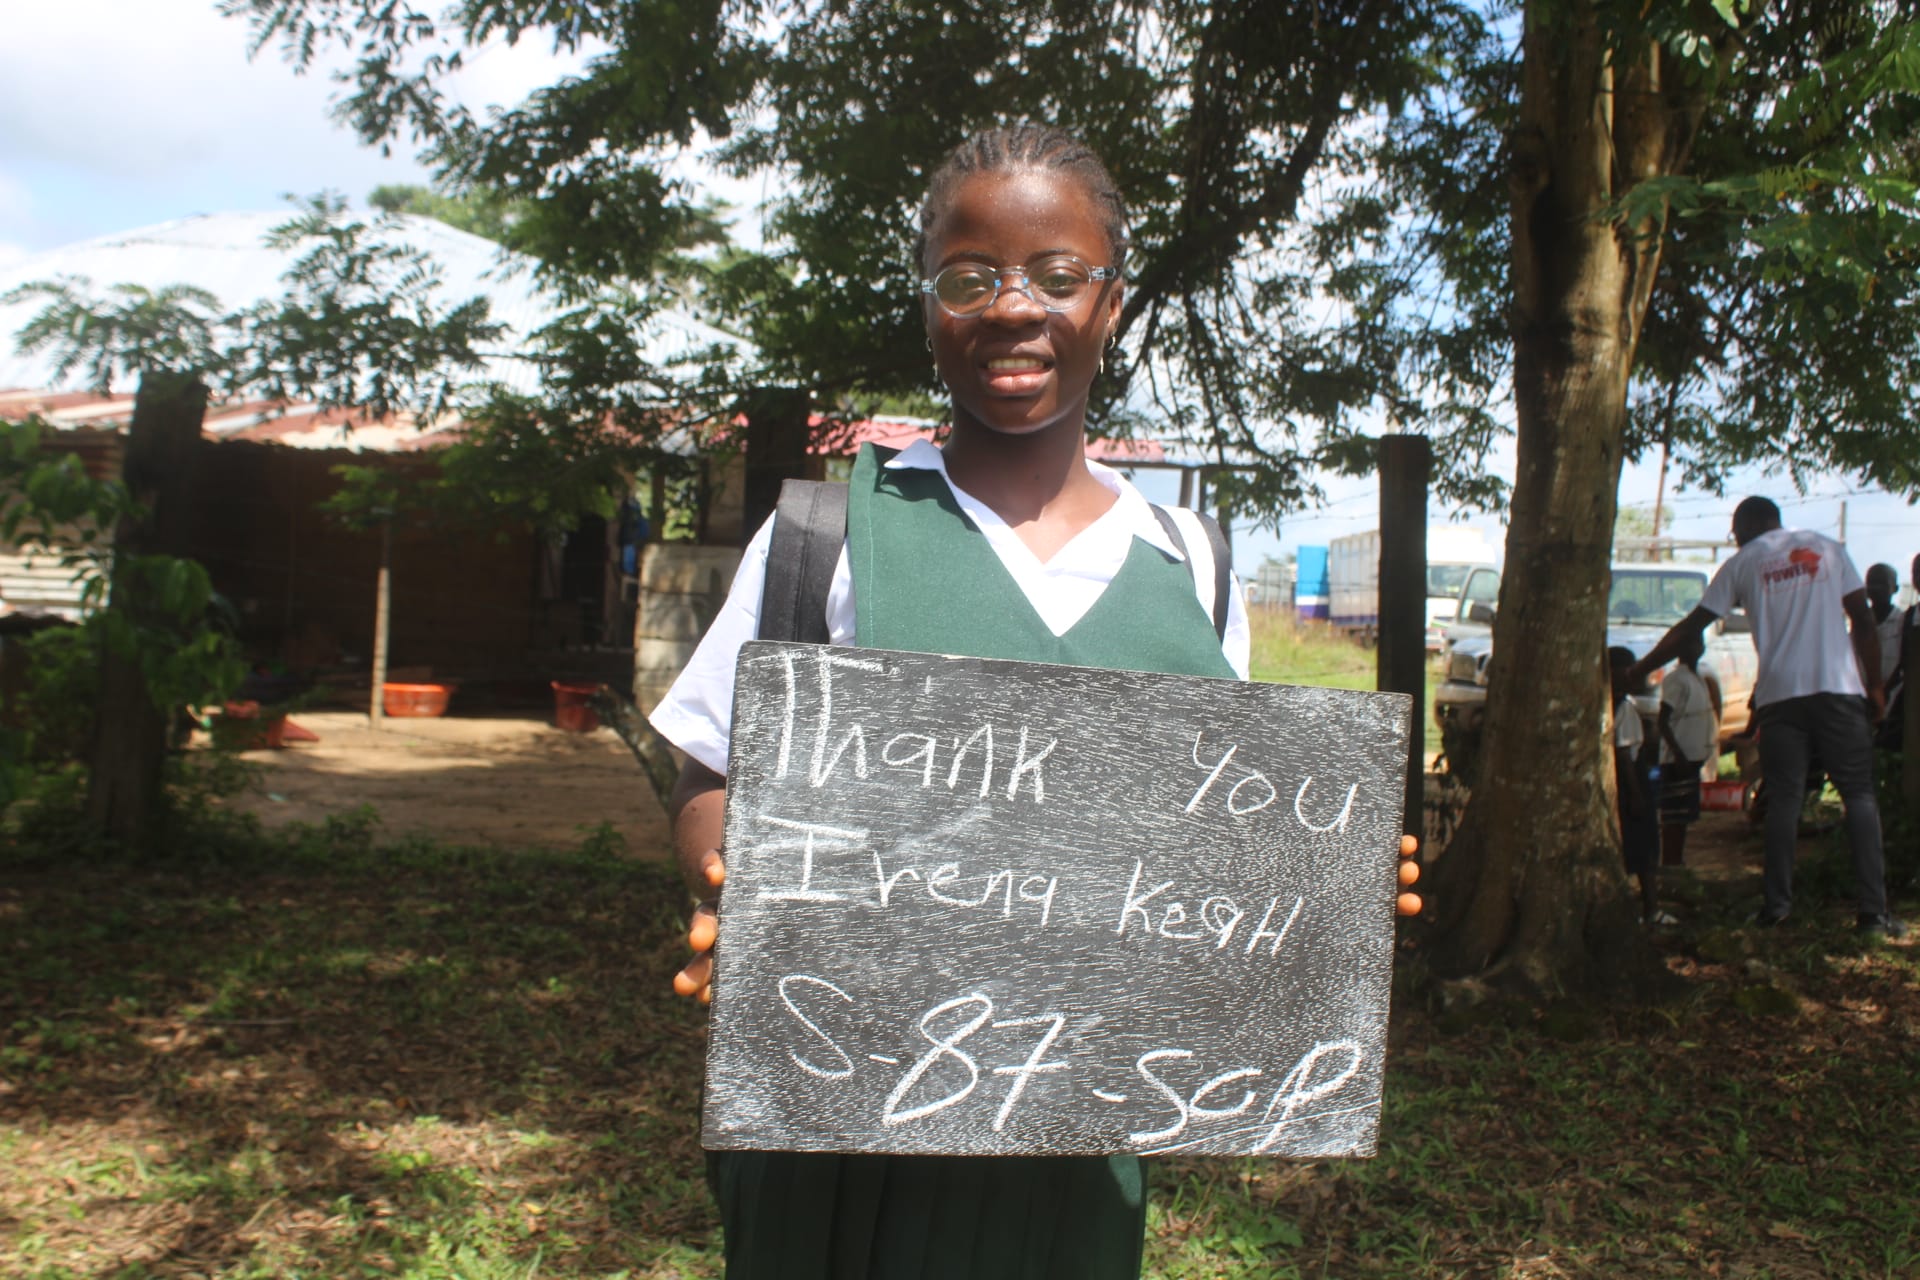 Thank You
Irena KeaH
S-87-SCP
POWER